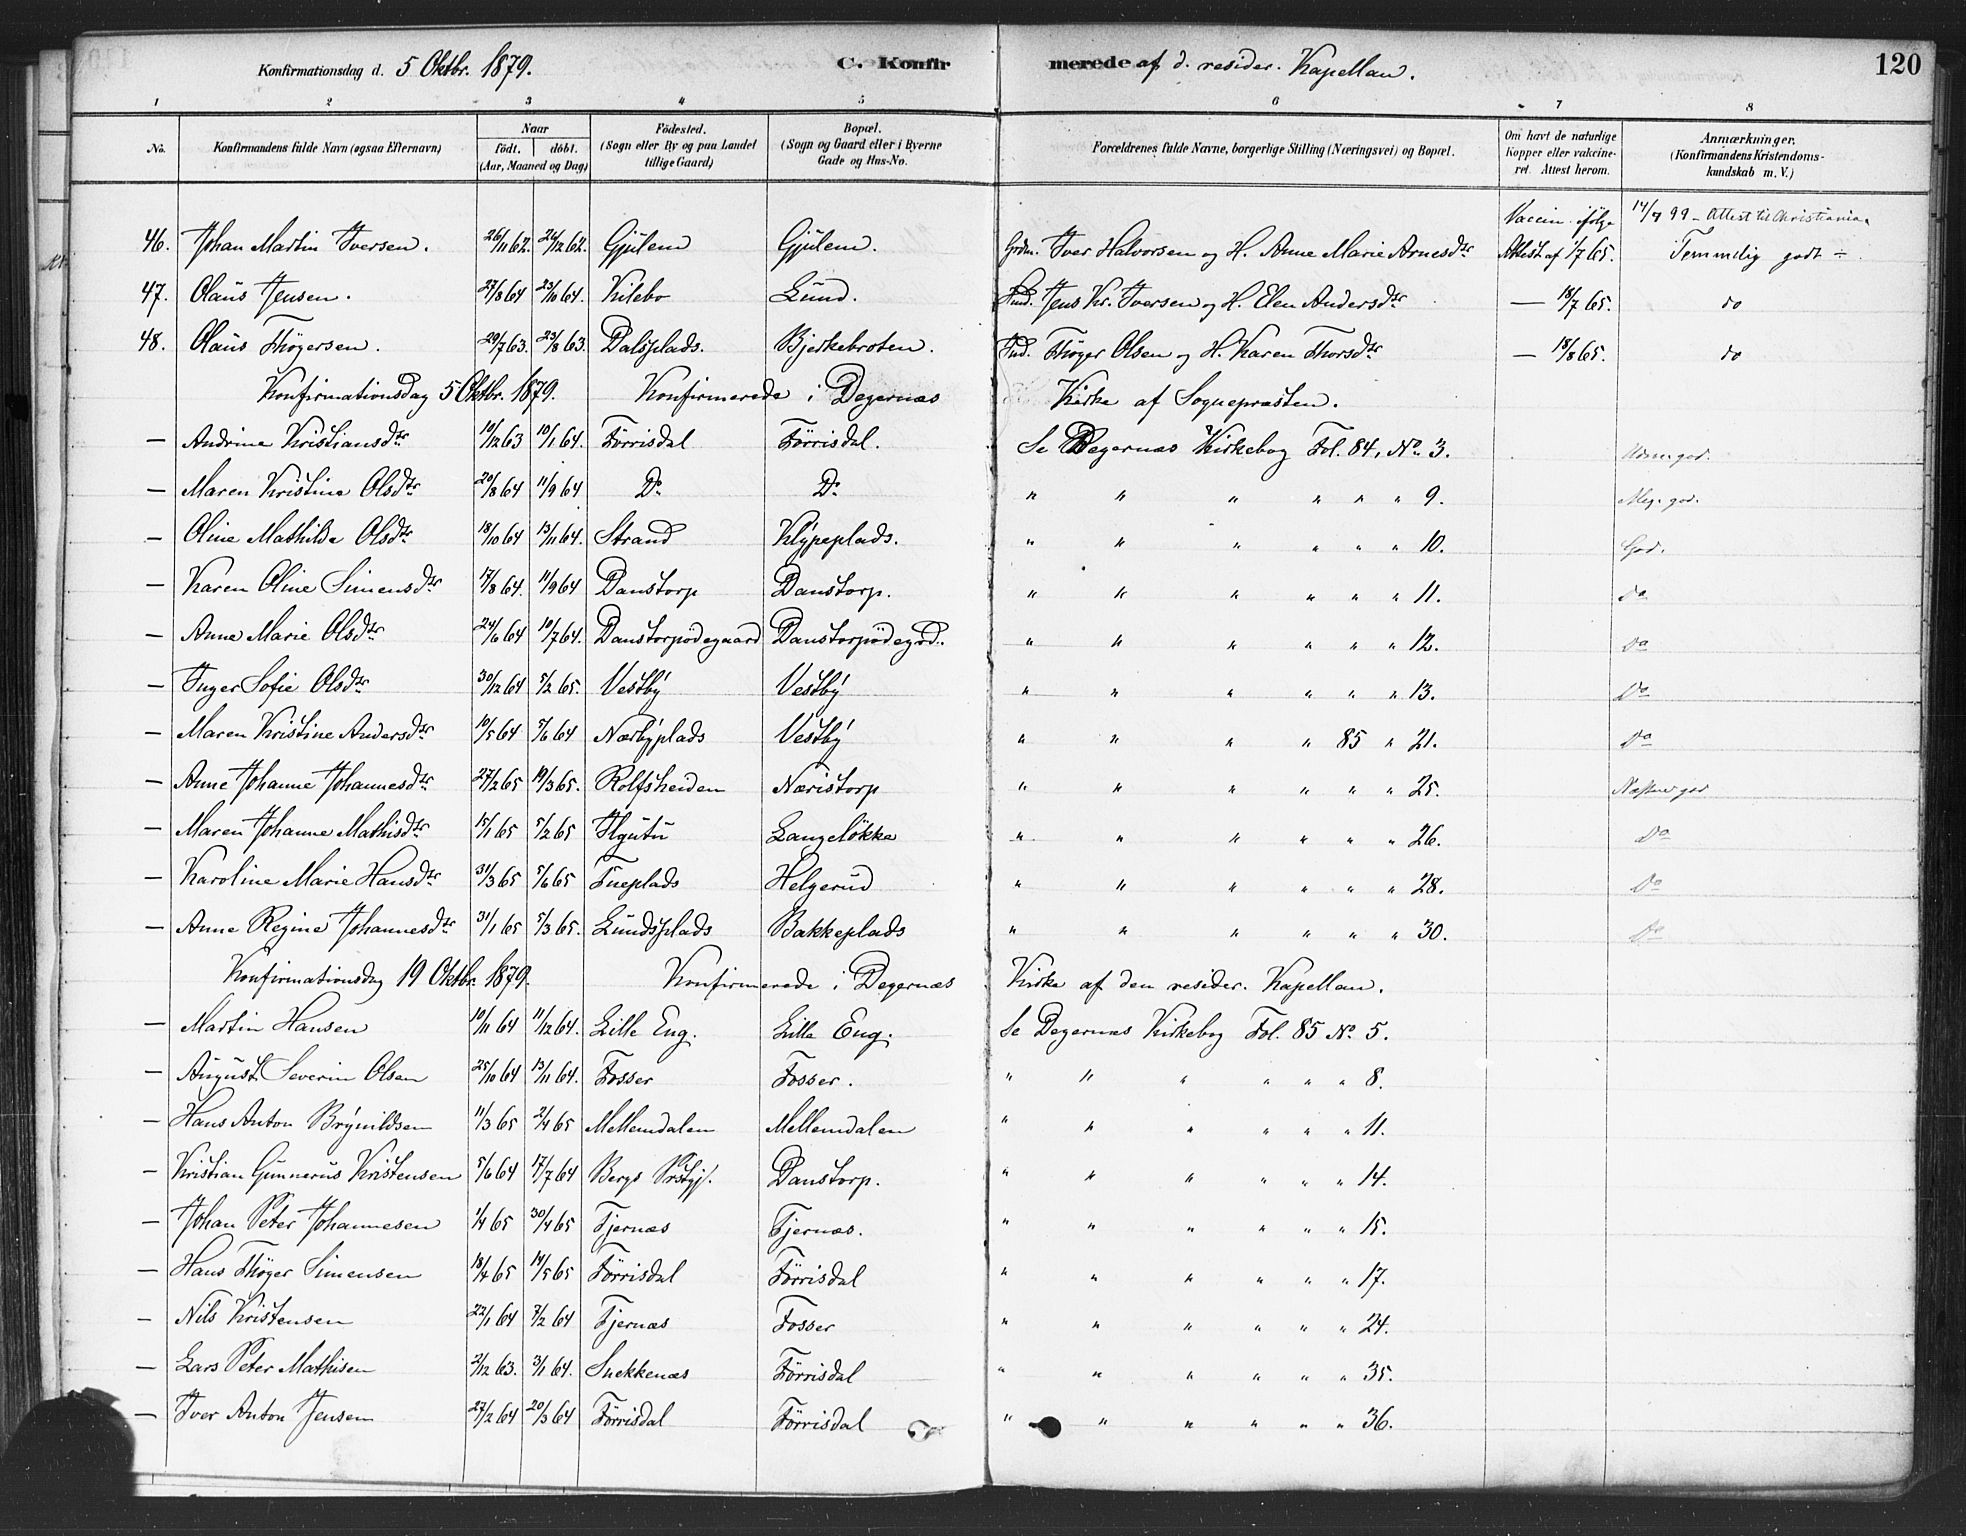 Konfirmationsdag d. 5 Oktbr. 1879. C. Konfirmerede af d. resider. Kapellan. 120
1 2 3 4 5 6 7 8
No. Konfirmandens fulde Navn (ogsaa Efternavn) Naar født. døbt. (Aar, Maaned og Dag) Fødested. (Sogn eller By og paa Landet tillige Gaard) Bopæl. (Sogn og Gaard eller i Byerne Gade og Hus-No. Forældrenes fulde Navne, borgerlige Stilling (Næringsvei) og Bopæl. Om havt de naturlige Kopper eller vakcineret. Attest herom. Anmærkninger. (Konfirmandens Kristendomskundskab m. V.)
Vaccin. ifølge 14/4 99 - Attest til Christiania
46. Johan Martin Iversen. 26/11 62. 26/12 62. Gjulem Gjulem. Grdm. Iver Halvorsen og H. Anne Marie Arnesdtr Attest af 1/7 65. Temmelig godt ÷
47. Olaus Jensen. 27/8 64 23/10 64. Kilebo Lund. Ind. Jens Kr. Iversen og H. Elen Andersdtr — 18/7 65. do
48. Olaus Thøgersen. 29/7 63. 23/8 63. Dalsplads. Bjerkebroten. Ind. Thøger Olsen og H. Karen Thorsdtr — 18/8 65. do
Konfirmationsdag 5 Oktbr. 1879. Konfirmerede i Degernæs Kirke af Sognepræsten.
— Andrine Kristiansdtr 10/12 63 10/1 64. Førrisdal Førrisdal. Se Degernæs Kirkebog Fol. 84, No 3. Udm. god.
— Maren Kristine Olsdtr 20/8 64 11/9 64 Do Do " " " " " " 9. Meg. god.
— Oline Mathilde Olsdtr 18/10 64 13/11 64. Strand Klypeplads. " " " " " " 10. God.
— Karen Oline Simensdtr 17/8 64. 11/9 64 Danstorp Danstorp. " " " " " " 11. do
— Anne Marie Olsdtr 24/6 64 10/7 64. Danstorpødegaard Danstorpødegrd. " " " " " " 12. do
— Inger Sofie Olsdtr 30/12 64 5/2 65. Vestby Vestby " " " " " " 13. Do
— Maren Kristine Andersdtr 10/5 64 5/6 64 Nærbyplads Vestby " " " " 85 " 21. Do
— Anne Johanne Johannesdtr 27/2 65 19/3 65. Rolfsheiden Næristorp " " " " " " 25. Næsten god
— Maren Johanne Mathisdtr 15/1 65 5/2 65 Langeløkke " " " " " " 26. Do
— Karoline Marie Hansdtr 31/3 65 5/6 65 Tueplads Helgerud " " " " " " 28. Do
— Anne Regine Johannesdtr 31/1 65 5/3 65. Lundsplads Bakkeplads " " " " " " 30. Do
Konfirmationsdag 19 Oktbr. 1879. Konfirmerede i Degernæs Kirke af den resider. Kapellan.
— Martin Hansen 10/11 64 11/12 64. Lille Eng. Lille Eng. Se Degernæs Kirkebog Fol. 85 No. 5.
— August Severin Olsen 25/10 64 13/11 64. Fosser Fosser. " " " " " " 8.
— Hans Anton Brynildsen 11/3 65 2/4 65 Mellemdalen Mellemdalen " " " " " " 11.
— Kristian Gunnerus Kristensen 5/6 64 17/7 64 Bergs Prstgj. Danstorp. " " " " " " 14.
— Johan Peter Johannesen 1/4 65 30/4 65 Tjernæs Tjernæs. " " " " " " 15.
— Hans Thøger Simensen 18/4 65 14/5 65 Førrisdal Førrisdal " " " " " " 17.
— Nils Kristensen 22/1 64 7/2 64 Tjernæs Fosser " " " " " " 24.
— Lars Peter Mathisen 2/12 63. 3/1 64. Snekkenæs Førrisdal " " " " " " 35.
— Iver Anton Jensen 27/2 64 20/3 64 Førrisdal Førrisdal " " " " " " 36.